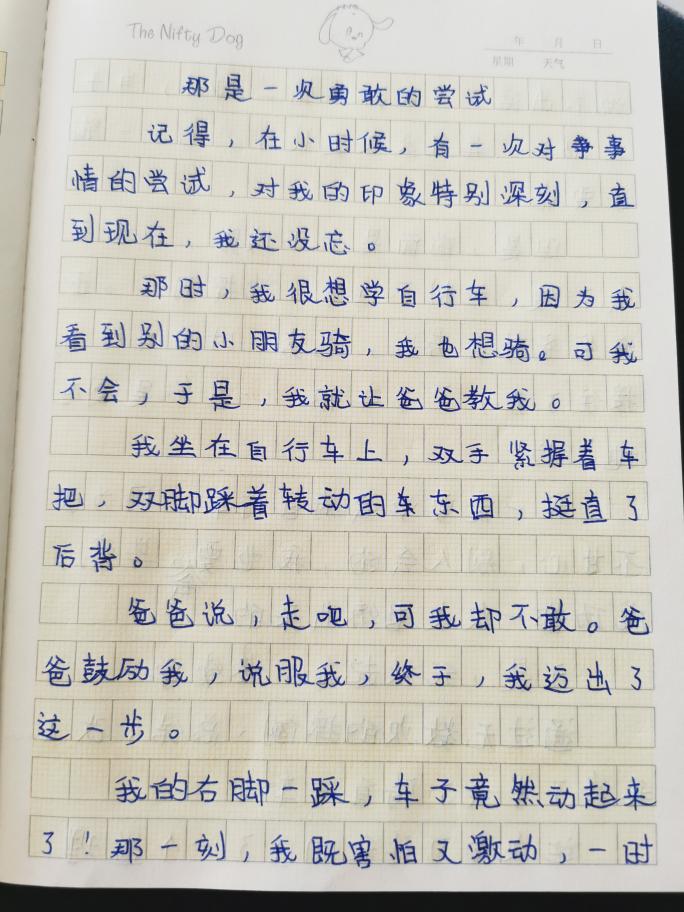 The Nifty Dog
年 月 日
星期 天气
那是一次勇敢的尝试
记得，在小时候，有一次对争事
情的尝试，对我的印象特别深刻，直
到现在，我还没忘。
那时，我很想学自行车，因为我
看到别的小朋友骑，我也想骑。可我
不会，于是，我就让爸爸教我。
我坐在自行车上，双手紧握着车
把，双脚踩着转动的车东西，挺直了
后背。
爸爸说，走吧，可我却不敢。爸
爸鼓励我，说服我，终于，我迈出了
这一步。
我的右脚一踩，车子竟然动起来
了！那一刻，我既害怕又激动，一时